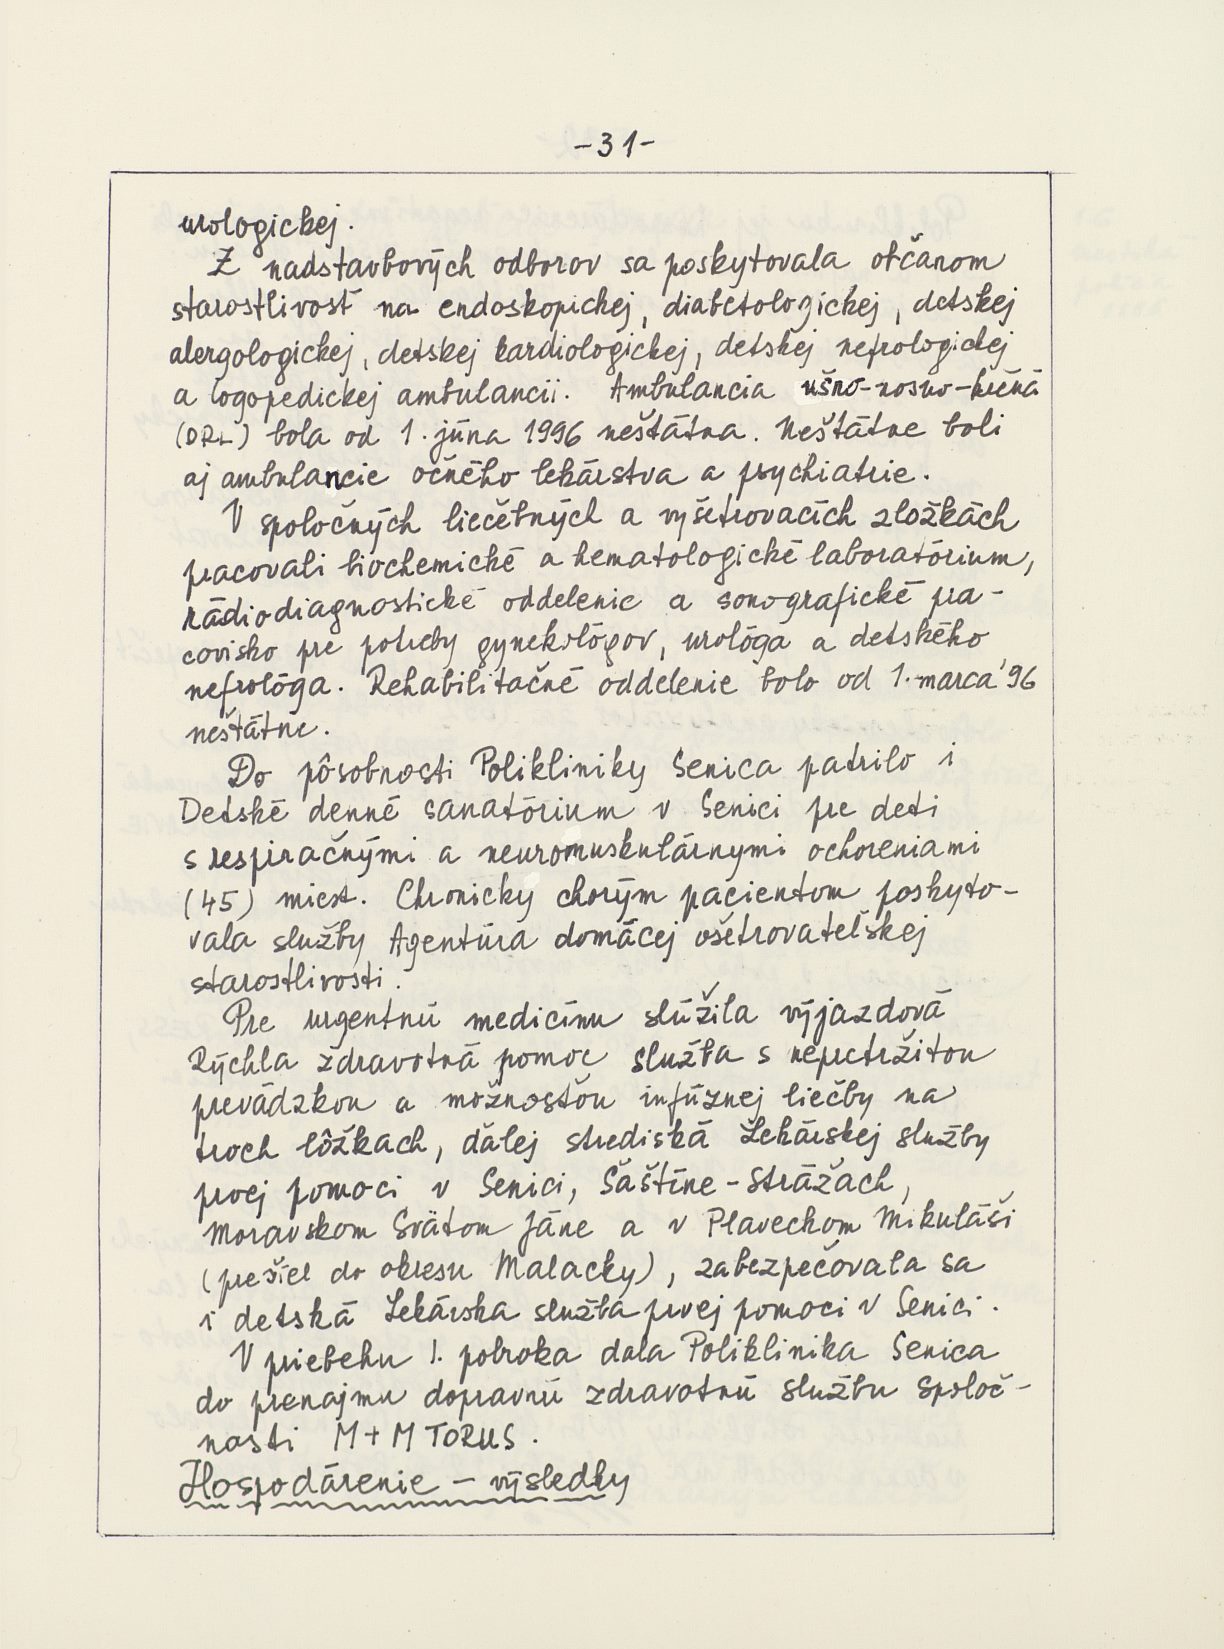 -31-
urologickej.
Z nadstavbových odborov sa poskytovala občanom
starostlivosť na endoskopickej, diabetologickej, detskej
alergologickej, detskej kardiologickej, detskej nefrologickej
a logopedickej ambulancii. Ambulancia ušno-nosno-krčná
(ORL) bola od 1. júna 1996 neštátna. Neštátne boli
aj ambulancie očného lekárstva a psychiatrie.
V spoločných liečebných a vyšetrovacích zložkách
pracovali biochemické a hematologické laboratórium,
rádiodiagnostické oddelenie a sonografické pra-
covisko pre potreby gynekológov, urológa a detského
nefrológa. Rehabilitačné oddelenie bolo od 1. marca '96
neštátne.
Do pôsobnosti Polikliniky Senica patrilo i
Detské denné sanatórium v Senici pre deti
s respiračnými a neuromuskulárnymi ochoreniami
(45) miest. Chronicky chorým pacientom poskyto-
vala služby Agentúra domácej ošetrovateľskej
starostlivosti.
Pre urgentnú medicínu slúžila výjazdová
Rýchla zdravotná pomoc služba s nepretržitou
prevádzkou a možnosťou infúznej liečby na
troch lôžkach, ďalej strediská Lekárskej služby
prvej pomoci v Senici, Šaštíne-Strážach,
Moravskom Svätom Jáne a v Plaveckom Mikuláši
(prešiel do okresu Malacky), zabezpečovala sa
i detská Lekárska služba prvej pomoci v Senici.
V priebehu I. polroka dala Poliklinika Senica
do prenajmu dopravnú zdravotnú službu spoloč-
nosti M+M TORUS.
Hospodárenie - výsledky